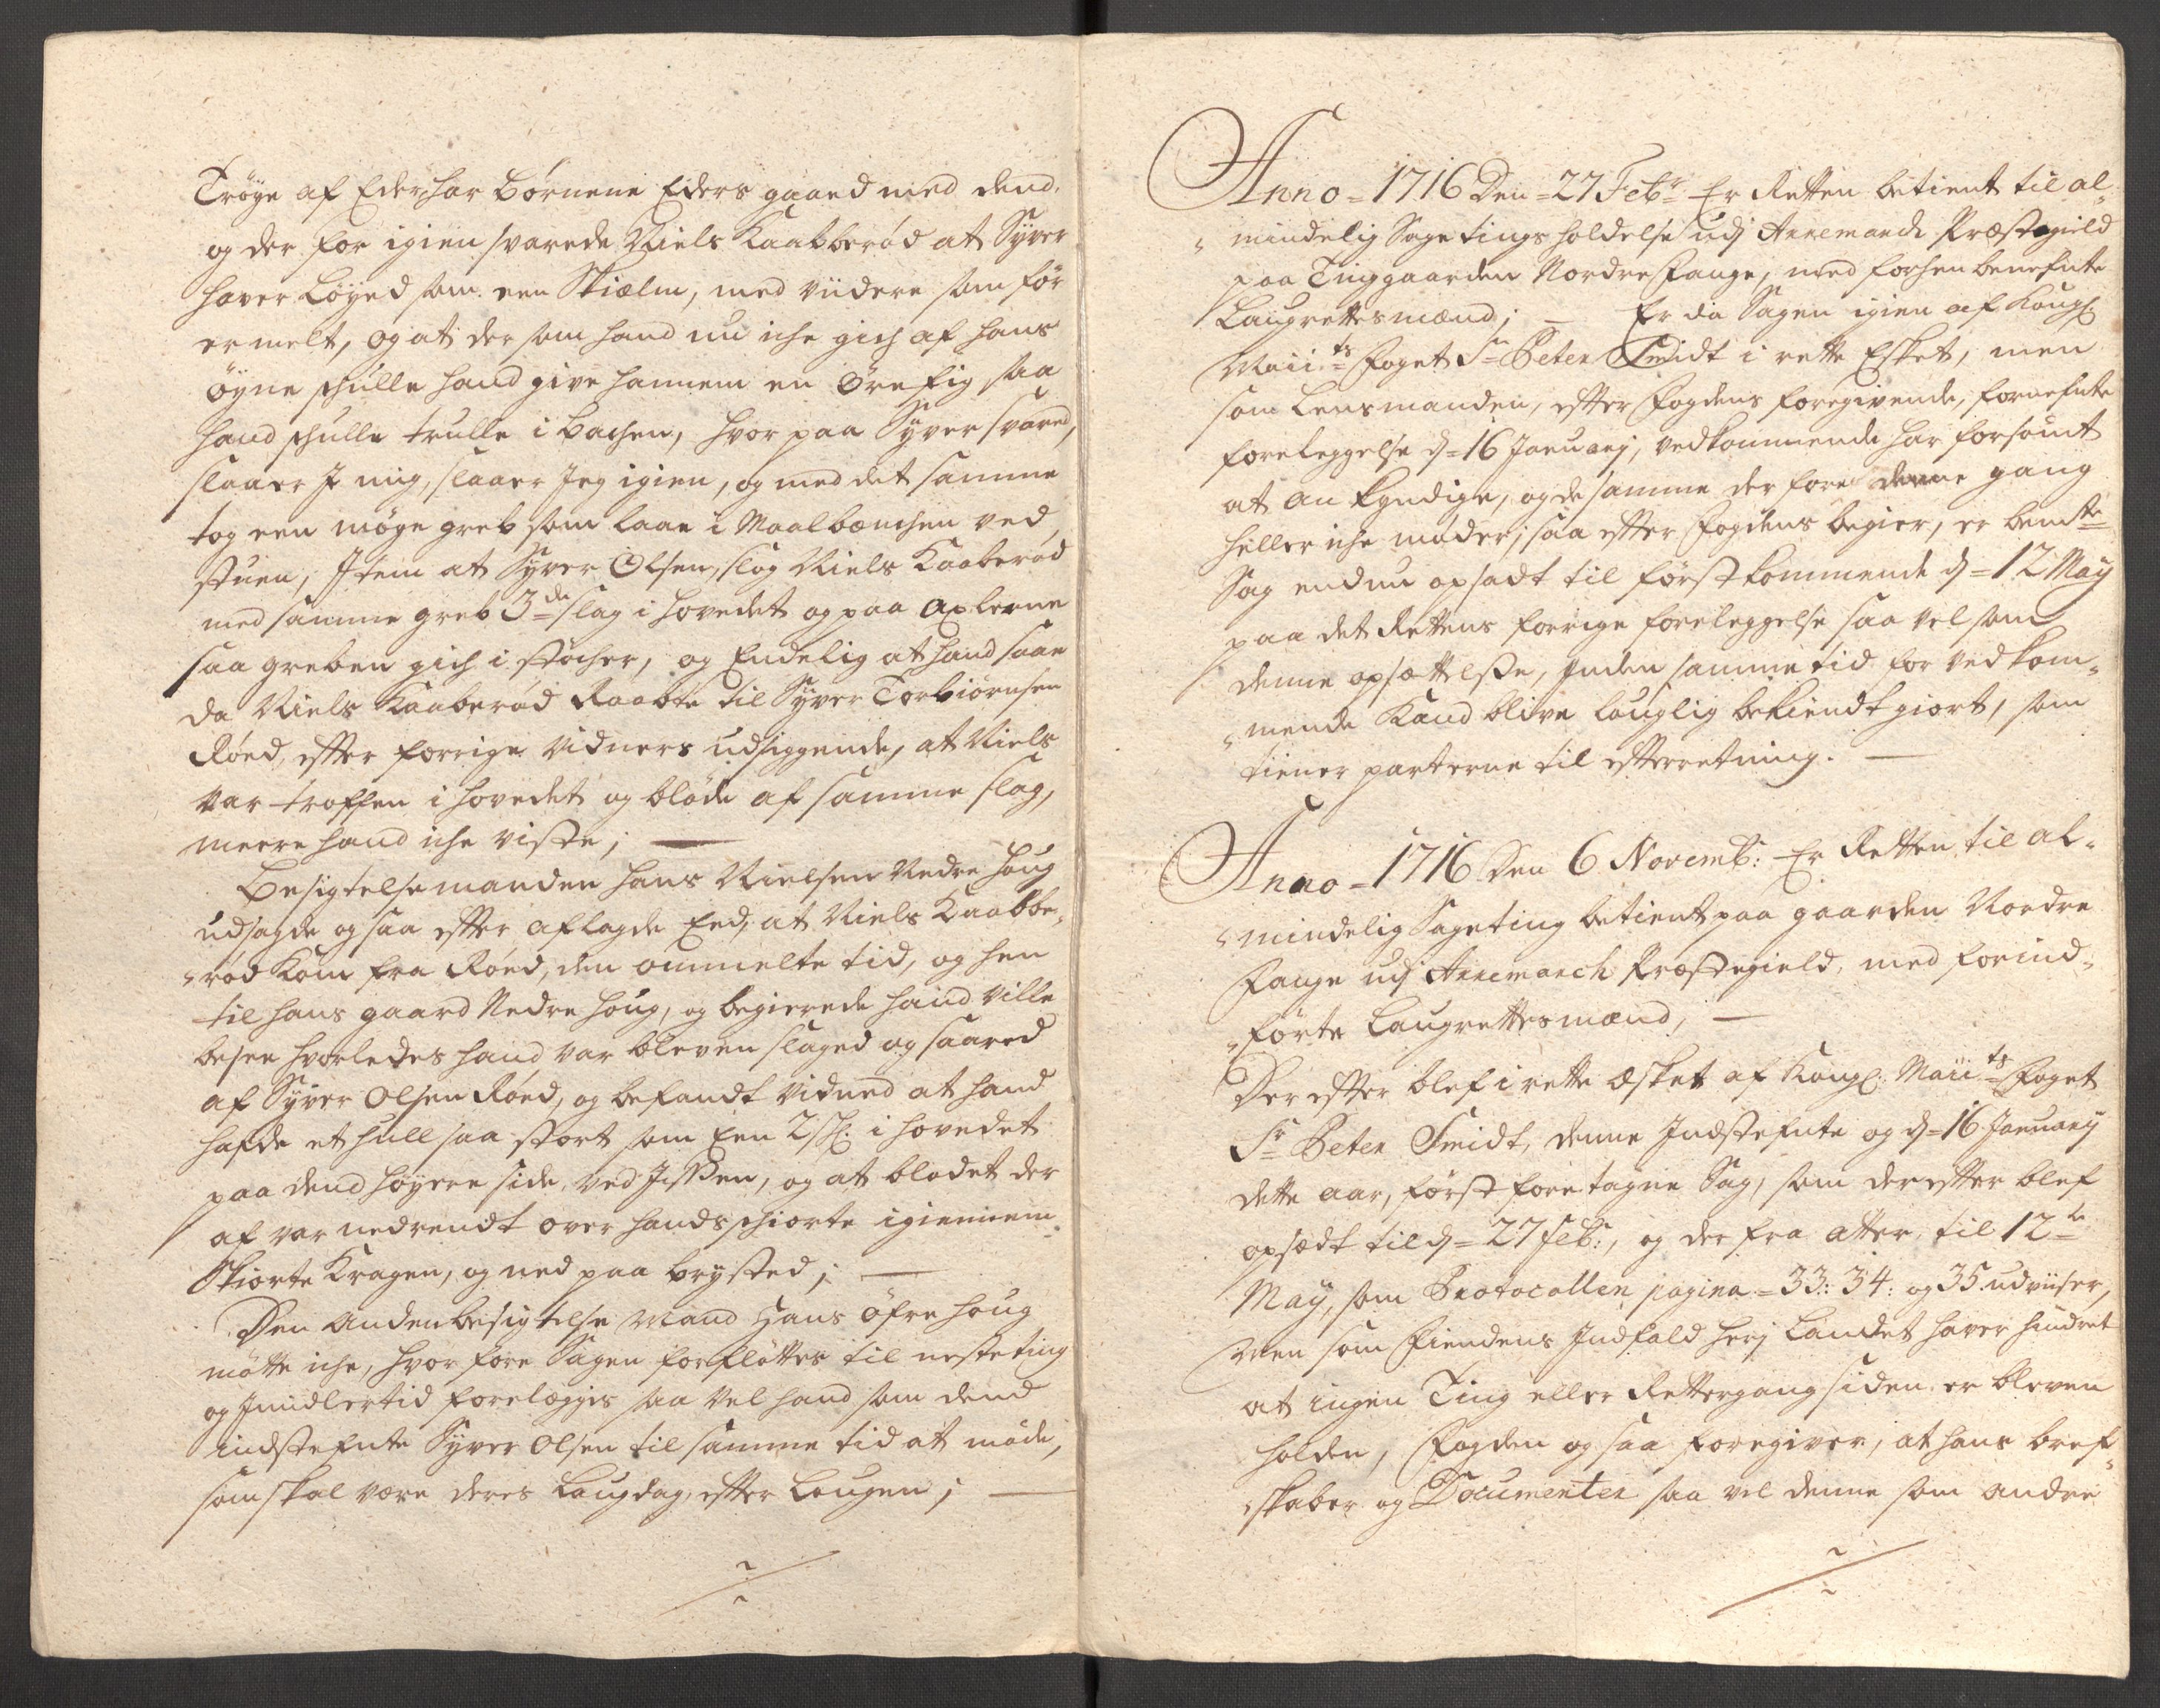 Trøye af Eder har Børnene Eders gaaed med dend,
og der for igien svarede Niels Kaabberød at Syver
haver Løyed som een Skielm, med viidere som før
er melt, og at der som hand nu iche gich af hans
øyne schulle hand give hannem en Ørefig saa
hand schulle trulle i bachen, hvor paa Syver svared,
slaaer I mig, slaaer Jeg igien, og med det samme
tog een møge greb som laae i Maalbænchen ved
stuen, Item at Syver Olsen, slog Niels Kaaberød
med samme greb 3de slag i hovedet og paa axlerne
saa greben gich i støcher, og Endelig at hand saae
da Niels Kaaberød Raabte til Syver Torbiørnsen
Røed, efter forrige Vidners udsiggende, at Niels
var troffen i hovedet og bløde af samme slag,
meere hand iche viste;
Besigtelsemanden Hans Nielsen Nedre Houg
udsagde og saa efter aflagde Eed, at Niels Kaabbe-
rød kom fra Røed, den ommelte tid, og hen
til hans gaard Nedre Houg, og begierede hand ville
besee hvorledes hand var bleven slaged og saared
af Syver Olsen Røed, og befandt vidned at hand
hafde et hull saa stort som Een 2 sch: i hovedet
paa dend høyere side, ved Issen, og at blodet der
af var nedrendt over hands schiorte igiennem
Skiorte Kragen, og ned paa brysted;
Den Anden besigtelse Mand Hans Øfre Houg
møtte iche, hvor fore Sagen forfløttes til neste ting
og Imidlertid forelægges saa vel hand som dend
indstefnte Syver Olsen til samme tid at møde,
som skal være deres Laugdag, efter Lougen;
Anno - 1716 Den - 27 Febr: Er Retten betient til al-
mindelig Sage tings holdelse udj Arremarch Præstegield
paa Tinggaarden Nordre Fange, med forhen benefnte
Laugrettesmænd; Er da Sagen igien af Kongl:
Maiits Foget Sr Peter Smidt i rette Esket, men
som Lensmanden, efter Fogdens foregivende, fornefnte
foreleggelse d=16 January, vedkommende har forsømt
at an kyndige, og de samme der fore denne gang
heller iche møder; saa efter Fogdens begier, er bemte
Sag endnu opsadt til førstkommende d=12 May
paa det Rettens forrige foreleggelse saa vel som
denne opsættelße, inden samme tid for vedkom-
mende kand blive louglig bekiendt giort, som
tiener parterne til efterretning.
Anno - 1716 Den 6 Novemb: Er Retten til al-
mindelig Sageting betient paa gaarden Nordre
Fange udj Arremarch Præstegield, med forind-
førte Laugrettesmænd;
Der efter blef i rette æsket af Kongl: Maiits Foget
Sr Peter Smidt, denne Indstefnte og d=16 January
dette aar, først foretagne Sag, som der efter blef
opsædt til d=27 feb:, og der fra atter til 12te
May, som Protocollen pagina = 33: 34: og 35 udviiser,
Men som Fiendens Indfald herj Landet haver hindret
at ingen Ting eller Rettergang siden er bleven
holden, Fogden og saa foregiver, at hans bref-
skaber og Documenter saa vel denne som andre